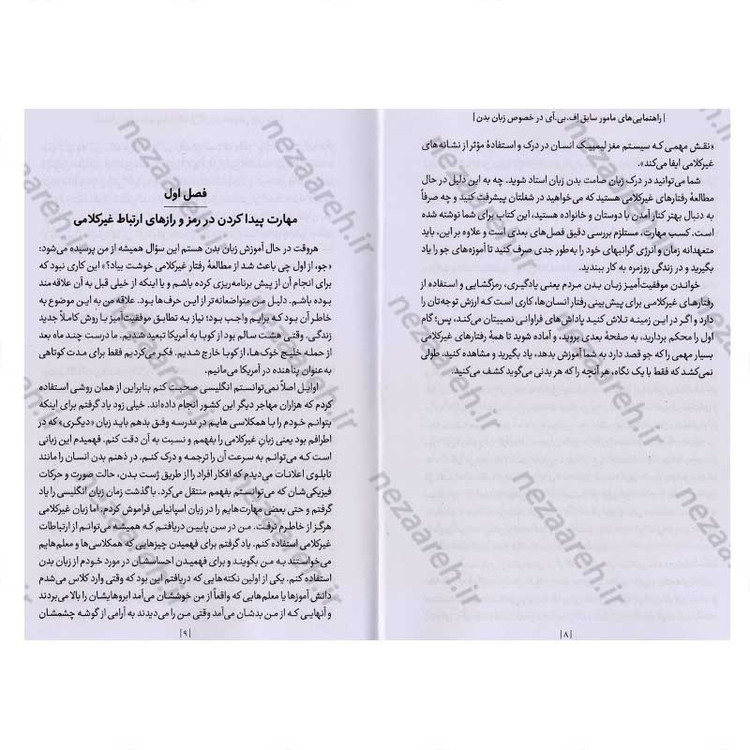 | راهنمایی‌های مامور سابق اِف.بی.آی در خصوص زبان بدن |
«نقش مهمی که سیستم مغز لیمبیک انسان در درک و استفادهٔ مؤثر از نشانه های
غیرکلامی ایفا می‌کند».
شما می‌توانید در درک زبان صامت بدن زبان استاد شوید. به این دلیل در حال
مطالعهٔ رفتارهای غیرکلامی هستید که می‌خواهید در شغلتان پیشرفت کنید و چه صرفاً
به دنبال بهتر کنار آمدن با دوستان و خانواده هستید، این کتاب برای شما نوشته شده
است. کسب مهارت، مستلزم بررسی دقیق فصل‌های بعدی است و علاوه بر این، باید
متعهدانه زمان و انرژی گرانبهای خود را به‌طور جدی صرف کنید تا آموزه‌های جو را یاد
بگیرید و در زندگی روزمره به کار ببندید.
خواندن موفقیت‌آمیز زبان بدن مردم یعنی یادگیری، رمزگشایی و استفاده از
رفتارهای غیرکلامی برای پیش‌بینی رفتار انسان‌ها، کاری است که ارزش توجه‌تان را
دارد و اگر در این زمینه تلاش کنید پاداش‌های فراوانی نصیبتان می‌کند، پس؛ گام
اول را محکم بردارید، به صفحهٔ بعدی بروید، و آماده شوید تا همهٔ رفتارهای غیرکلامی
بسیار مهمی را که جو قصد دارد به شما آموزش بدهد، یاد بگیرید و مشاهده کنید. طولی
نمی‌کشد که فقط با یک نگاه، هر آنچه را که هر بدنی می‌گوید کشف می‌کنید.
| ۸ |
فصل اول
مهارت پیدا کردن در رمز و رازهای ارتباط غیرکلامی
هروقت در حال آموزش زبان بدن هستم این سؤال همیشه از من پرسیده می‌شود:
«جو، از اول چی باعث شد از مطالعهٔ رفتار غیرکلامی خوشت بیاد؟» این کاری نبود که
برای انجام آن از پیش برنامه‌ریزی کرده باشم و یا اینکه از خیلی قبل به آن علاقه‌مند
بوده باشم. دلیل من متواضعانه‌تر از این حرف‌ها بود. علاقه من به این موضوع به
خاطر آن بود که برایم واجب بود؛ نیاز به تطابق موفقیت‌آمیز با روش کاملاً جدید
زندگی. وقتی هشت سالم بود از کوبا به آمریکا تبعید شدیم. ما درست چند ماه بعد
از حمله خلیج خوک‌ها، از کوبا خارج شدیم. فکر می‌کردیم فقط برای مدت کوتاهی
به‌عنوان پناهنده در آمریکا می‌مانیم.
اوایل اصلاً نمی‌توانستم انگلیسی صحبت کنم بنابراین از همان روشی استفاده
کردم که هزاران مهاجر دیگر این کشور انجام داده‌اند. خیلی زود یاد گرفتم برای اینکه
بتوانم خودم را با همکلاسی هایم در مدرسه وفق بدهم باید زبان «دیگری» که در
اطرافم بود یعنی زبانِ غیرکلامی را بفهمم و نسبت به آن دقت کنم. فهمیدم این زبانی
است که می‌توانم به سرعت آن را ترجمه و درک کنم. در ذهنم بدن انسان را مانند
تابلوی اعلانات می‌دیدم که افکار افراد را از طریق ژست بدن، حالت صورت و حرکات
فیزیکی‌شان که می‌توانستم بفهمم منتقل می‌کرد. با گذشت زمان زبان انگلیسی را یاد
گرفتم و حتی بعضی مهارت‌هایم را در زبان اسپانیایی فراموش کردم، اما زبان غیرکلامی
هرگز از خاطرم نرفت. من در سن پایین دریافتم که همیشه می‌توانم از ارتباطات
غیرکلامی استفاده کنم. یاد گرفتم برای فهمیدن چیزهایی که همکلاسی‌ها و معلم‌هایم
می‌خواستند به من بگویند و برای فهمیدن احساسشان در مورد خودم از زبان بدن
استفاده کنم. یکی از اولین نکته‌هایی که دریافتم این بود که وقتی وارد کلاس می‌شدم
دانش آموزها یا معلم‌هایی که واقعاً از من خوششان می‌آمد ابروهایشان را بالا می‌بردند
و آنهایی که از من بدشان می‌آمد وقتی من را می‌دیدند به آرامی از گوشه چشمشان
| ۹ |
nezaareh.ir
nezaareh.ir
nezaareh.ir
nezaareh.ir
nezaareh.ir
nezaareh.ir
nezaareh.ir
nezaareh.ir